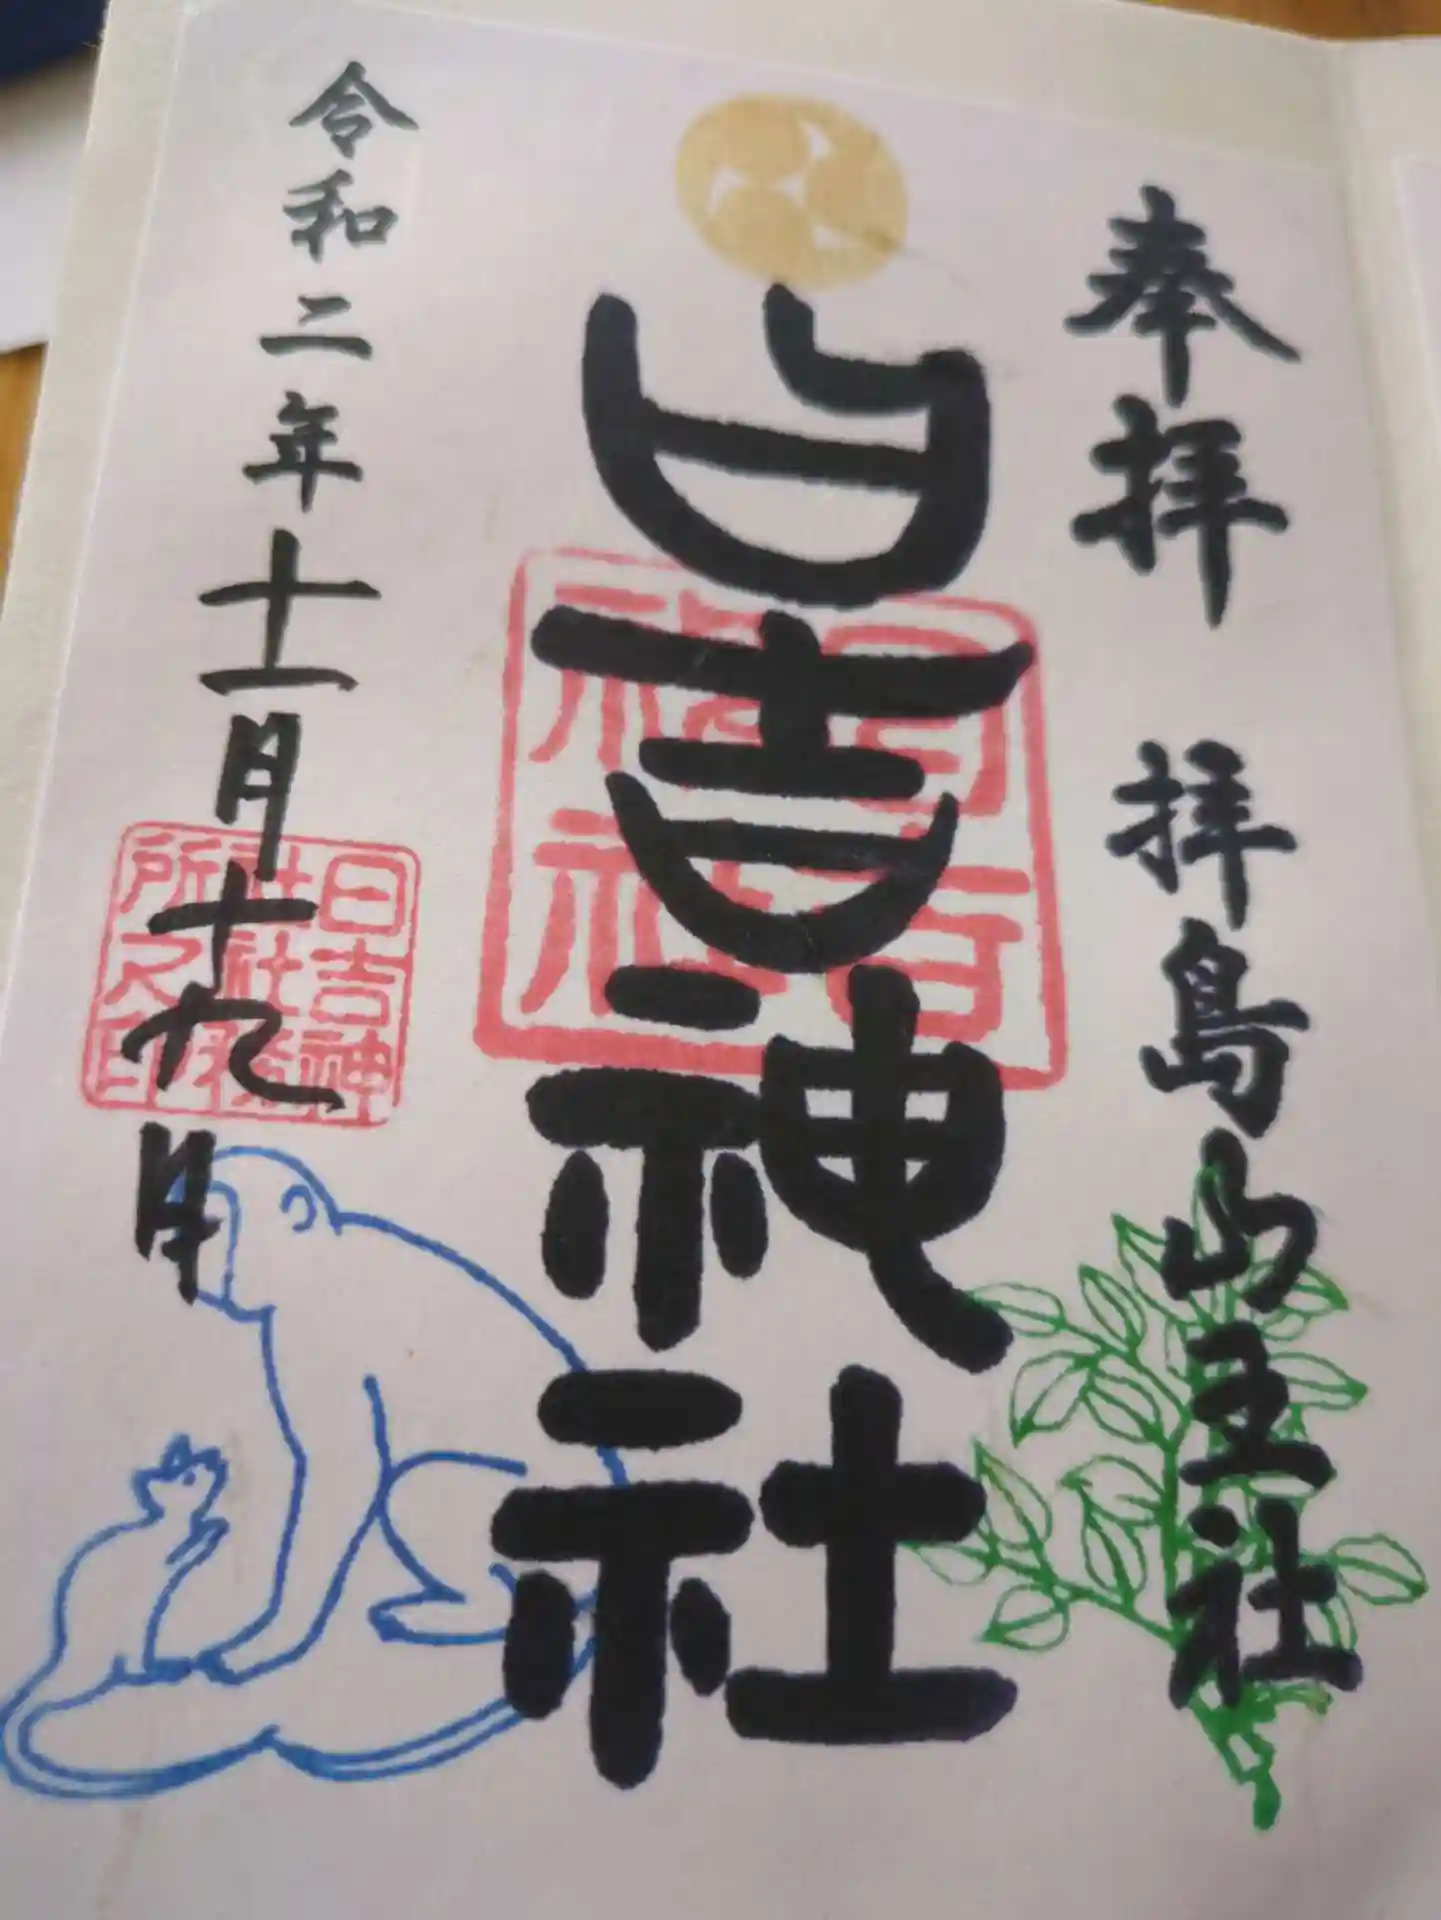 奉拝 拝島山王社
日吉神社
日吉
神社
令和二年十一月十九日
日吉神
社社務
所之印